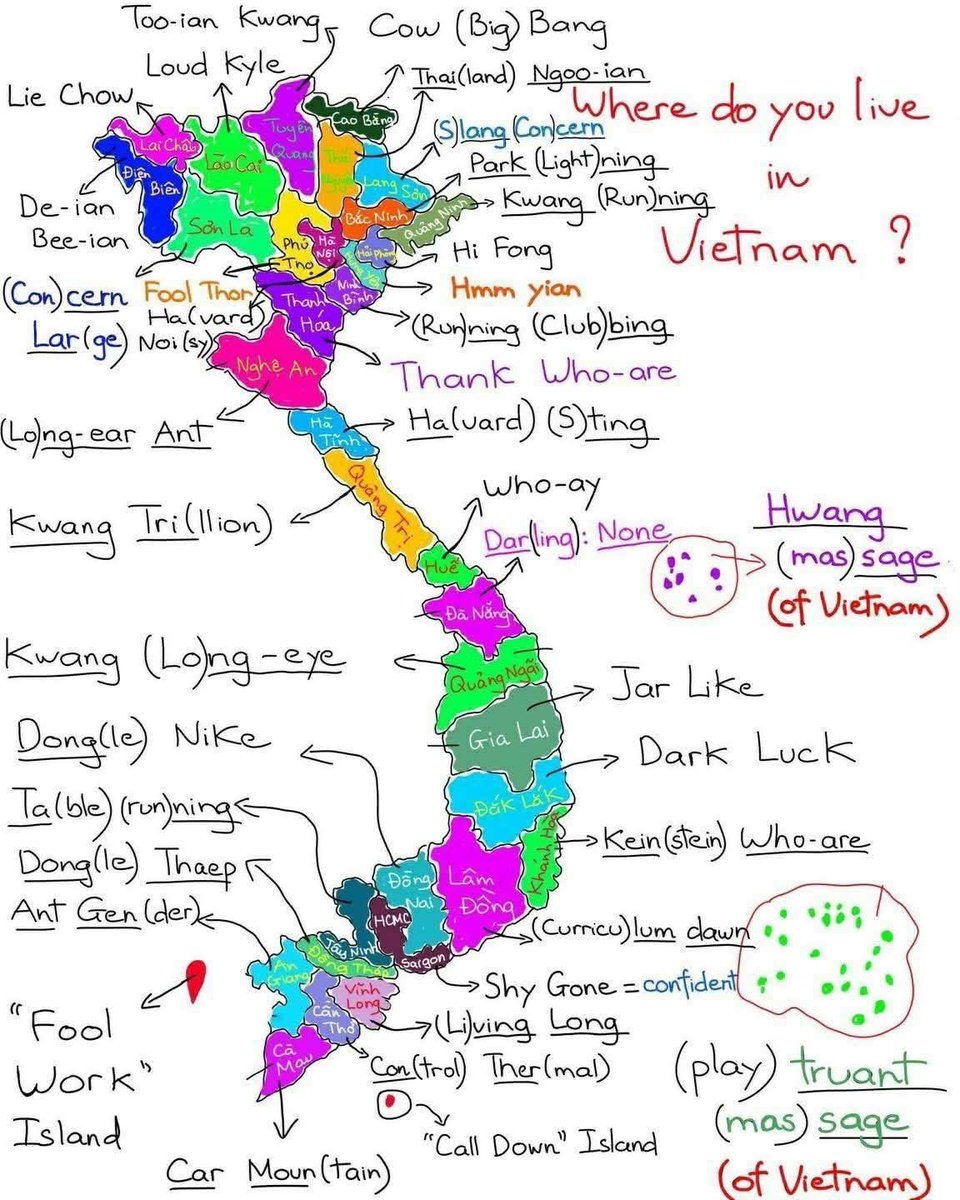 Too-ian Kwang
Cow (Big) Bang
Loud Kyle
Thai(land) Ngoo-ian
Lie Chow
Where do you live
in
Vietnam ?
(S)lang (Con)cern
Park (Light)ning
Kwang (Run)ning
De-ian
Bee-ian
Hi Fong
Hmm yian
(Con)cern
Lar(ge)
Fool Thor
Ha(vard)
Noi(sy)
(Run)ning (Club)bing
Thank Who-are
Cao Bằng
Tuyên
Quang
Lai Châu
Lào Cai
Thái
Nguyên
Lạng Sơn
Điện
Biên
Bắc Ninh
Quảng Ninh
Sơn La
Phú
Thọ
Hà
Nội
Hải Phòng
Hưng Yên
Ninh
Bình
Thanh
Hóa
Nghệ An
(Lo)ng-ear Ant
Hà
Tĩnh
Ha(vard) (S)ting
Quảng Trị
Kwang Tri(llion)
Who-ay
Huế
Dar(ling): None
Đà Nẵng
Hwang
(mas)sage
(of Vietnam)
Kwang (Lo)ng-eye
Quảng Ngãi
Jar Like
Gia Lai
Dong(le) Nike
Dark Luck
Đắk Lắk
Ta(ble) (run)ning
Kein(stein) Who-are
Khánh Hòa
Dong(le) Thaep
Đồng
Nai
Lâm
Đồng
Ant Gen(der)
HCMC
(Curricu)lum dawn
Tây Ninh
Saigon
Đồng Tháp
An
Giang
Shy Gone = confident
Vĩnh
Long
Cần
Thơ
(Li)ving Long
"Fool
Work"
Island
Cà
Mau
Con(trol) Ther(mal)
"Call Down" Island
Car Moun(tain)
(play) truant
(mas) sage
(of Vietnam)